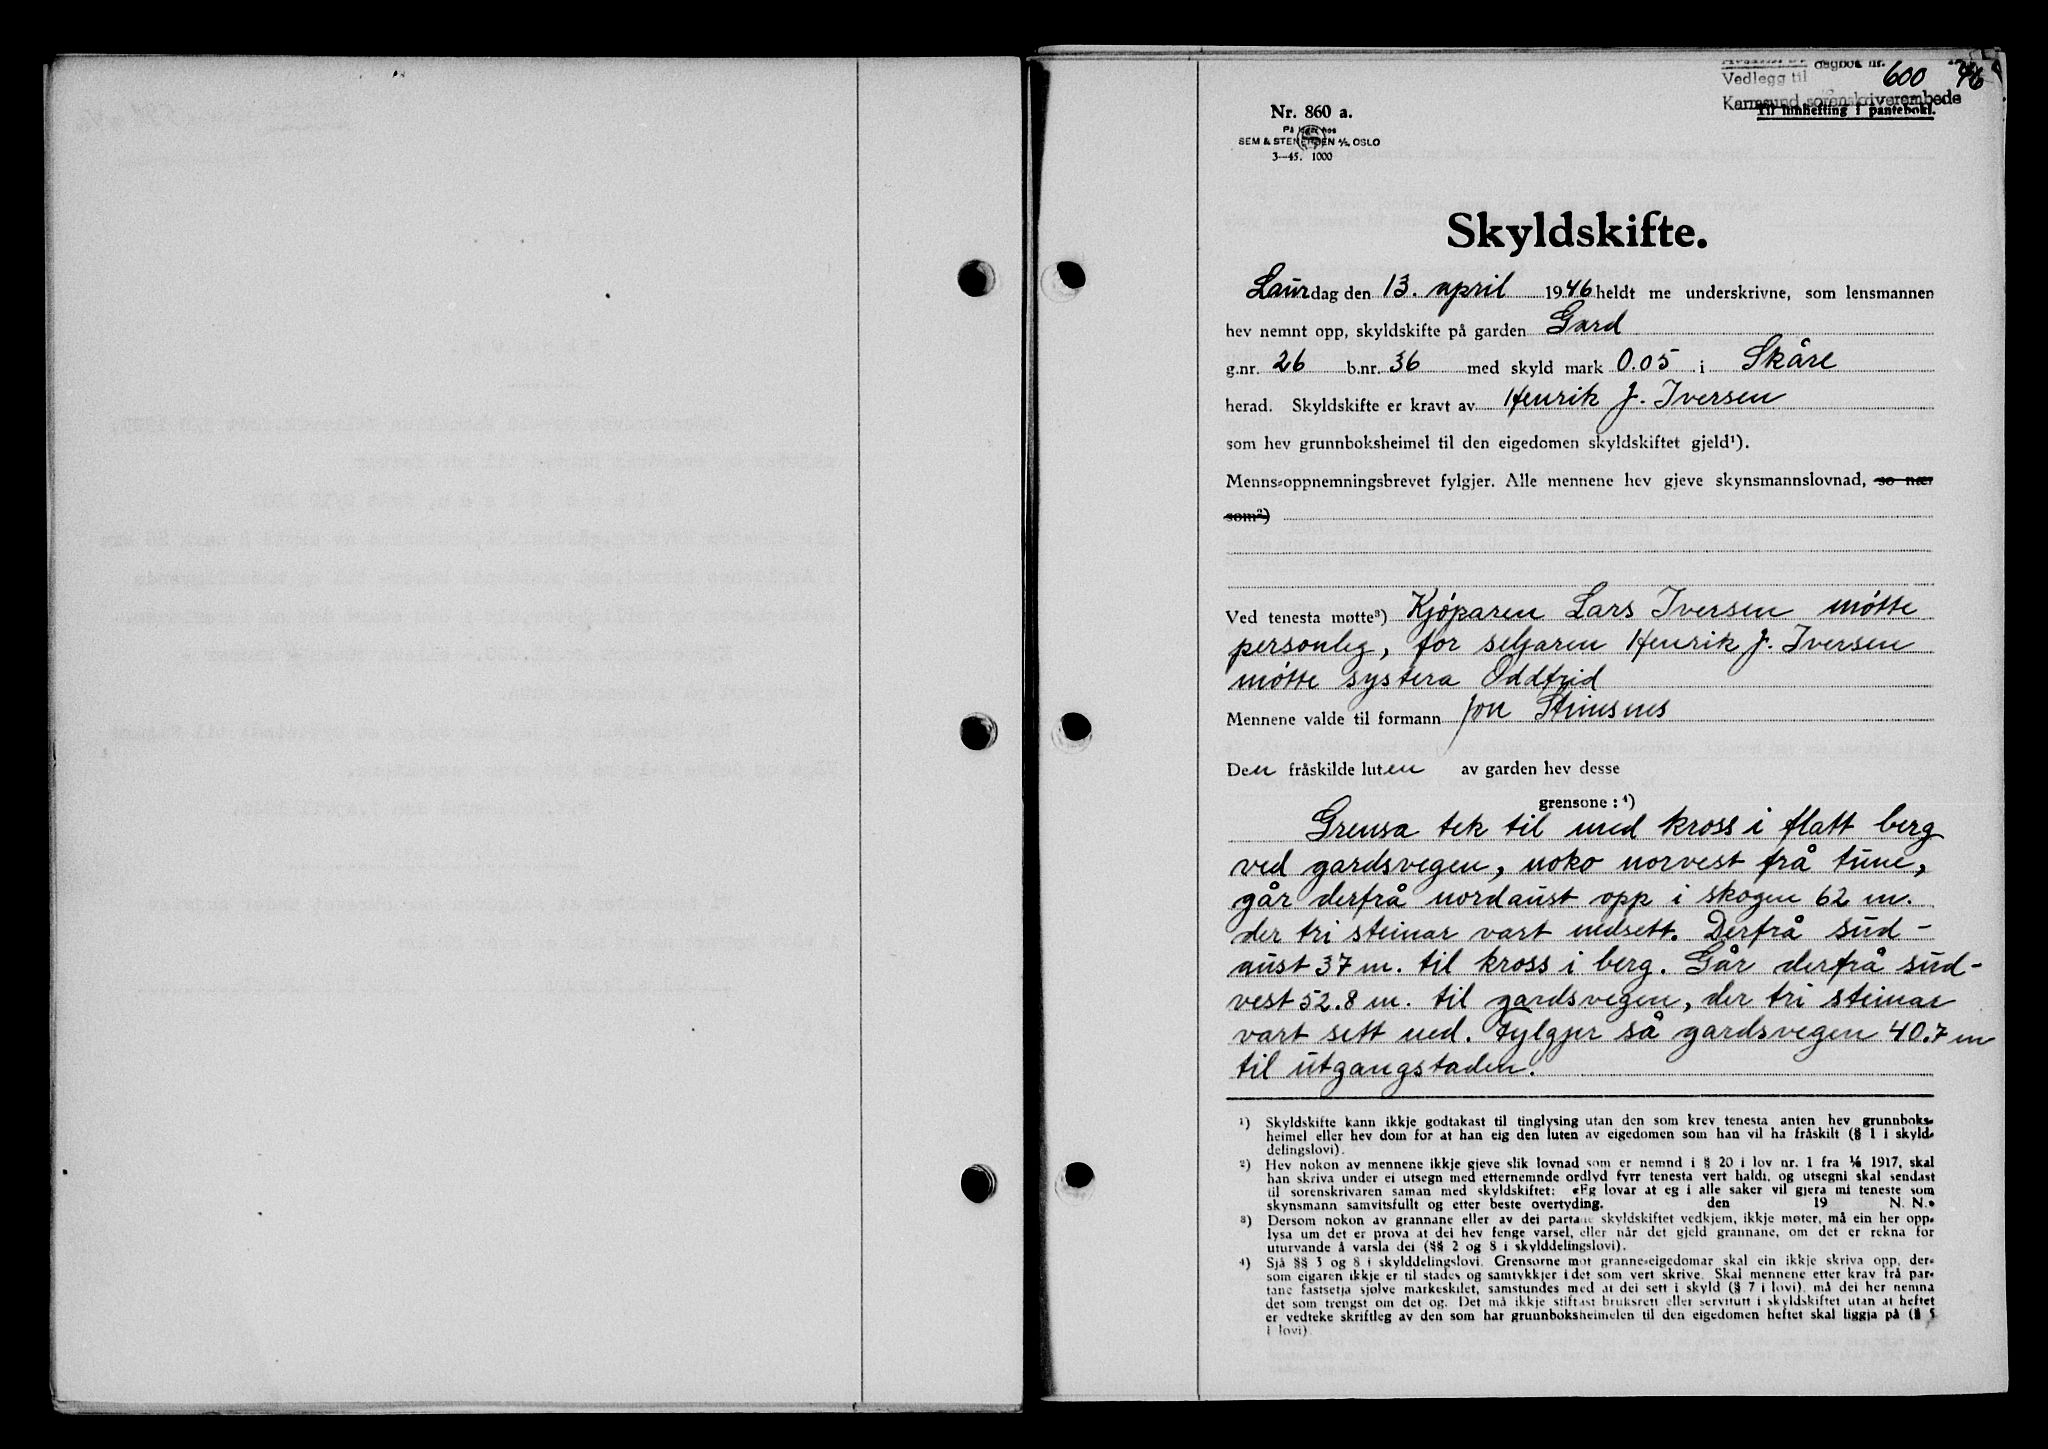 dagbok nr. 600 46
Vedlegg til
Karmsund sorenskriverembede
Til innhefting i pantebok.
Nr. 860 a.
På lager hos
SEM & STENERSEN A/S, OSLO
3—45. 1000
Skyldskifte.
Laurdag den 13. april 1946 heldt me underskrivne, som lensmannen
hev nemnt opp, skyldskifte på garden Gard
g.nr. 26 b.nr. 36 med skyld mark 0.05 i Skåre
herad. Skyldskifte er kravt av Henrik J. Iversen
som hev grunnboksheimel til den eigedomen skyldskiftet gjeld¹).
Menns-oppnemningsbrevet fylgjer. Alle mennene hev gjeve skynsmannslovnad, so nær
som²)
Ved tenesta møtte³) Kjöparen Lars Iversen møtte
personleg, for seljaren Henrik J. Iversen
møtte systera Oddfrid
Mennene valde til formann Jon Stensnes
Den fråskilde luten av garden hev desse
grensone: ⁴)
Grensa tek til med kross i flatt berg
ved gardsvegen, noko norvest frå tune,
går derfrå nordaust opp i skogen 62 m.
der tri steinar vart nedsett. Derfrå sud-
aust 37 m. til kross i berg. Går derfrå sud-
vest 52.8 m. til gardsvegen, der tri steinar
vart sett ned. Fylgjer så gardsvegen 40.7 m
til utgangstaden.
¹) Skyldskifte kann ikkje godtakast til tinglysing utan den som krev tenesta anten hev grunnboks-
heimel eller hev dom for at han eig den luten av eigedomen som han vil ha fråskilt (§ 1 i skyld-
delingslovi).
²) Hev nokon av mennene ikkje gjeve slik lovnad som er nemnd i § 20 i lov nr. 1 fra 1/6 1917, skal
han skriva under ei utsegn med etternemnde ordlyd fyrr tenesta vert haldi, og utsegni skal sendast
til sorenskrivaren saman med skyldskiftet: «Eg lovar at eg i alle saker vil gjera mi teneste som
skynsmann samvitsfullt og etter beste overtyding. den 19 N. N.»
³) Dersom nokon av grannane eller av dei partane skyldskiftet vedkjem, ikkje møter, må ein her opp-
lysa um det er prova at dei hev fenge varsel, eller når det gjeld grannane, om det er rekna for
uturvande å varsla dei (§§ 2 og 8 i skylddelingslovi).
⁴) Sjå §§ 3 og 8 i skylddelingslovi. Grensorne mot granne-eigedomar skal ein ikkje skriva opp, der-
som eigaren ikkje er til stades og samtykkjer i det som vert skrive. Skal mennene etter krav frå par-
tane fastsetja sjølve markeskilet, samstundes med at dei sett i skyld (§ 7 i lovi), må dei her nemna
det som trengst om det og. Det må ikkje stiftast bruksrett eller servitutt i skyldskiftet utan at heftet
er vedteke skriftleg av den som har grunnboksheimelen til den eigedomen heftet skal liggja på (§ 5
i lovi).